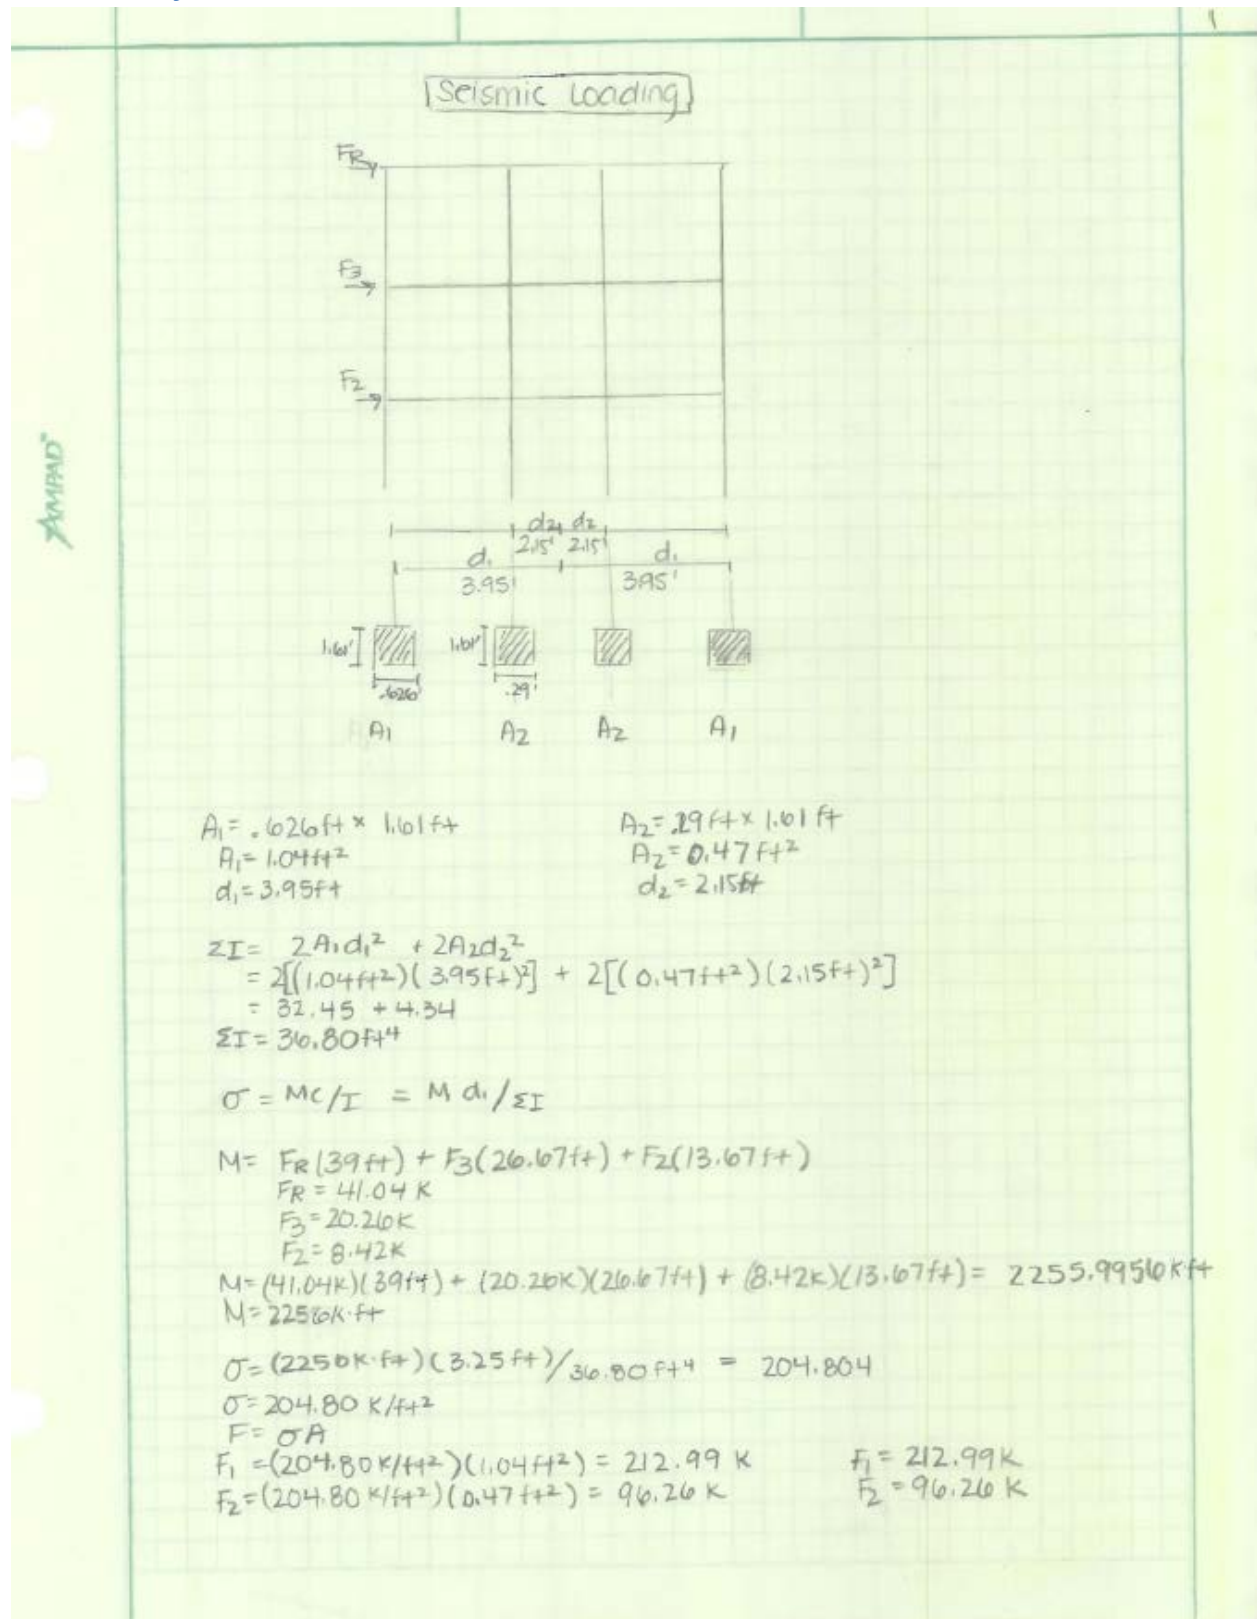 1
Seismic Loading
FR
F3
F2
d2 d2
2.15' 2.15'
d1 d1
3.95' 3.95'
1.61' 1.61'
.626' .29'
A1 A2 A2 A1
AMPAD
A1= .626ft x 1.61ft A2= .29ft x 1.61ft
A1= 1.04ft² A2= 0.47ft²
d1= 3.95ft d2= 2.15ft
ΣI= 2A1d1² + 2A2d2²
= 2[(1.04ft²)(3.95ft)²] + 2[(0.47ft²)(2.15ft)²]
= 32.45 + 4.34
ΣI= 36.80ft⁴
σ = Mc/I = M d1/ΣI
M= FR(39ft) + F3(26.67ft) + F2(13.67ft)
FR = 41.04 K
F3 = 20.26K
F2 = 8.42K
M=(41.04K)(39ft) + (20.26K)(26.67ft) + (8.42K)(13.67ft)= 2255.9956 Kft
M=2256K·ft
σ=(2256K·ft)(3.25ft)/36.80ft⁴ = 204.804
σ=204.80 K/ft²
F= σA
F1 =(204.80K/ft²)(1.04ft²) = 212.99 K F1 = 212.99K
F2=(204.80 K/ft²)(0.47ft²) = 96.26 K F2 = 96.26 K